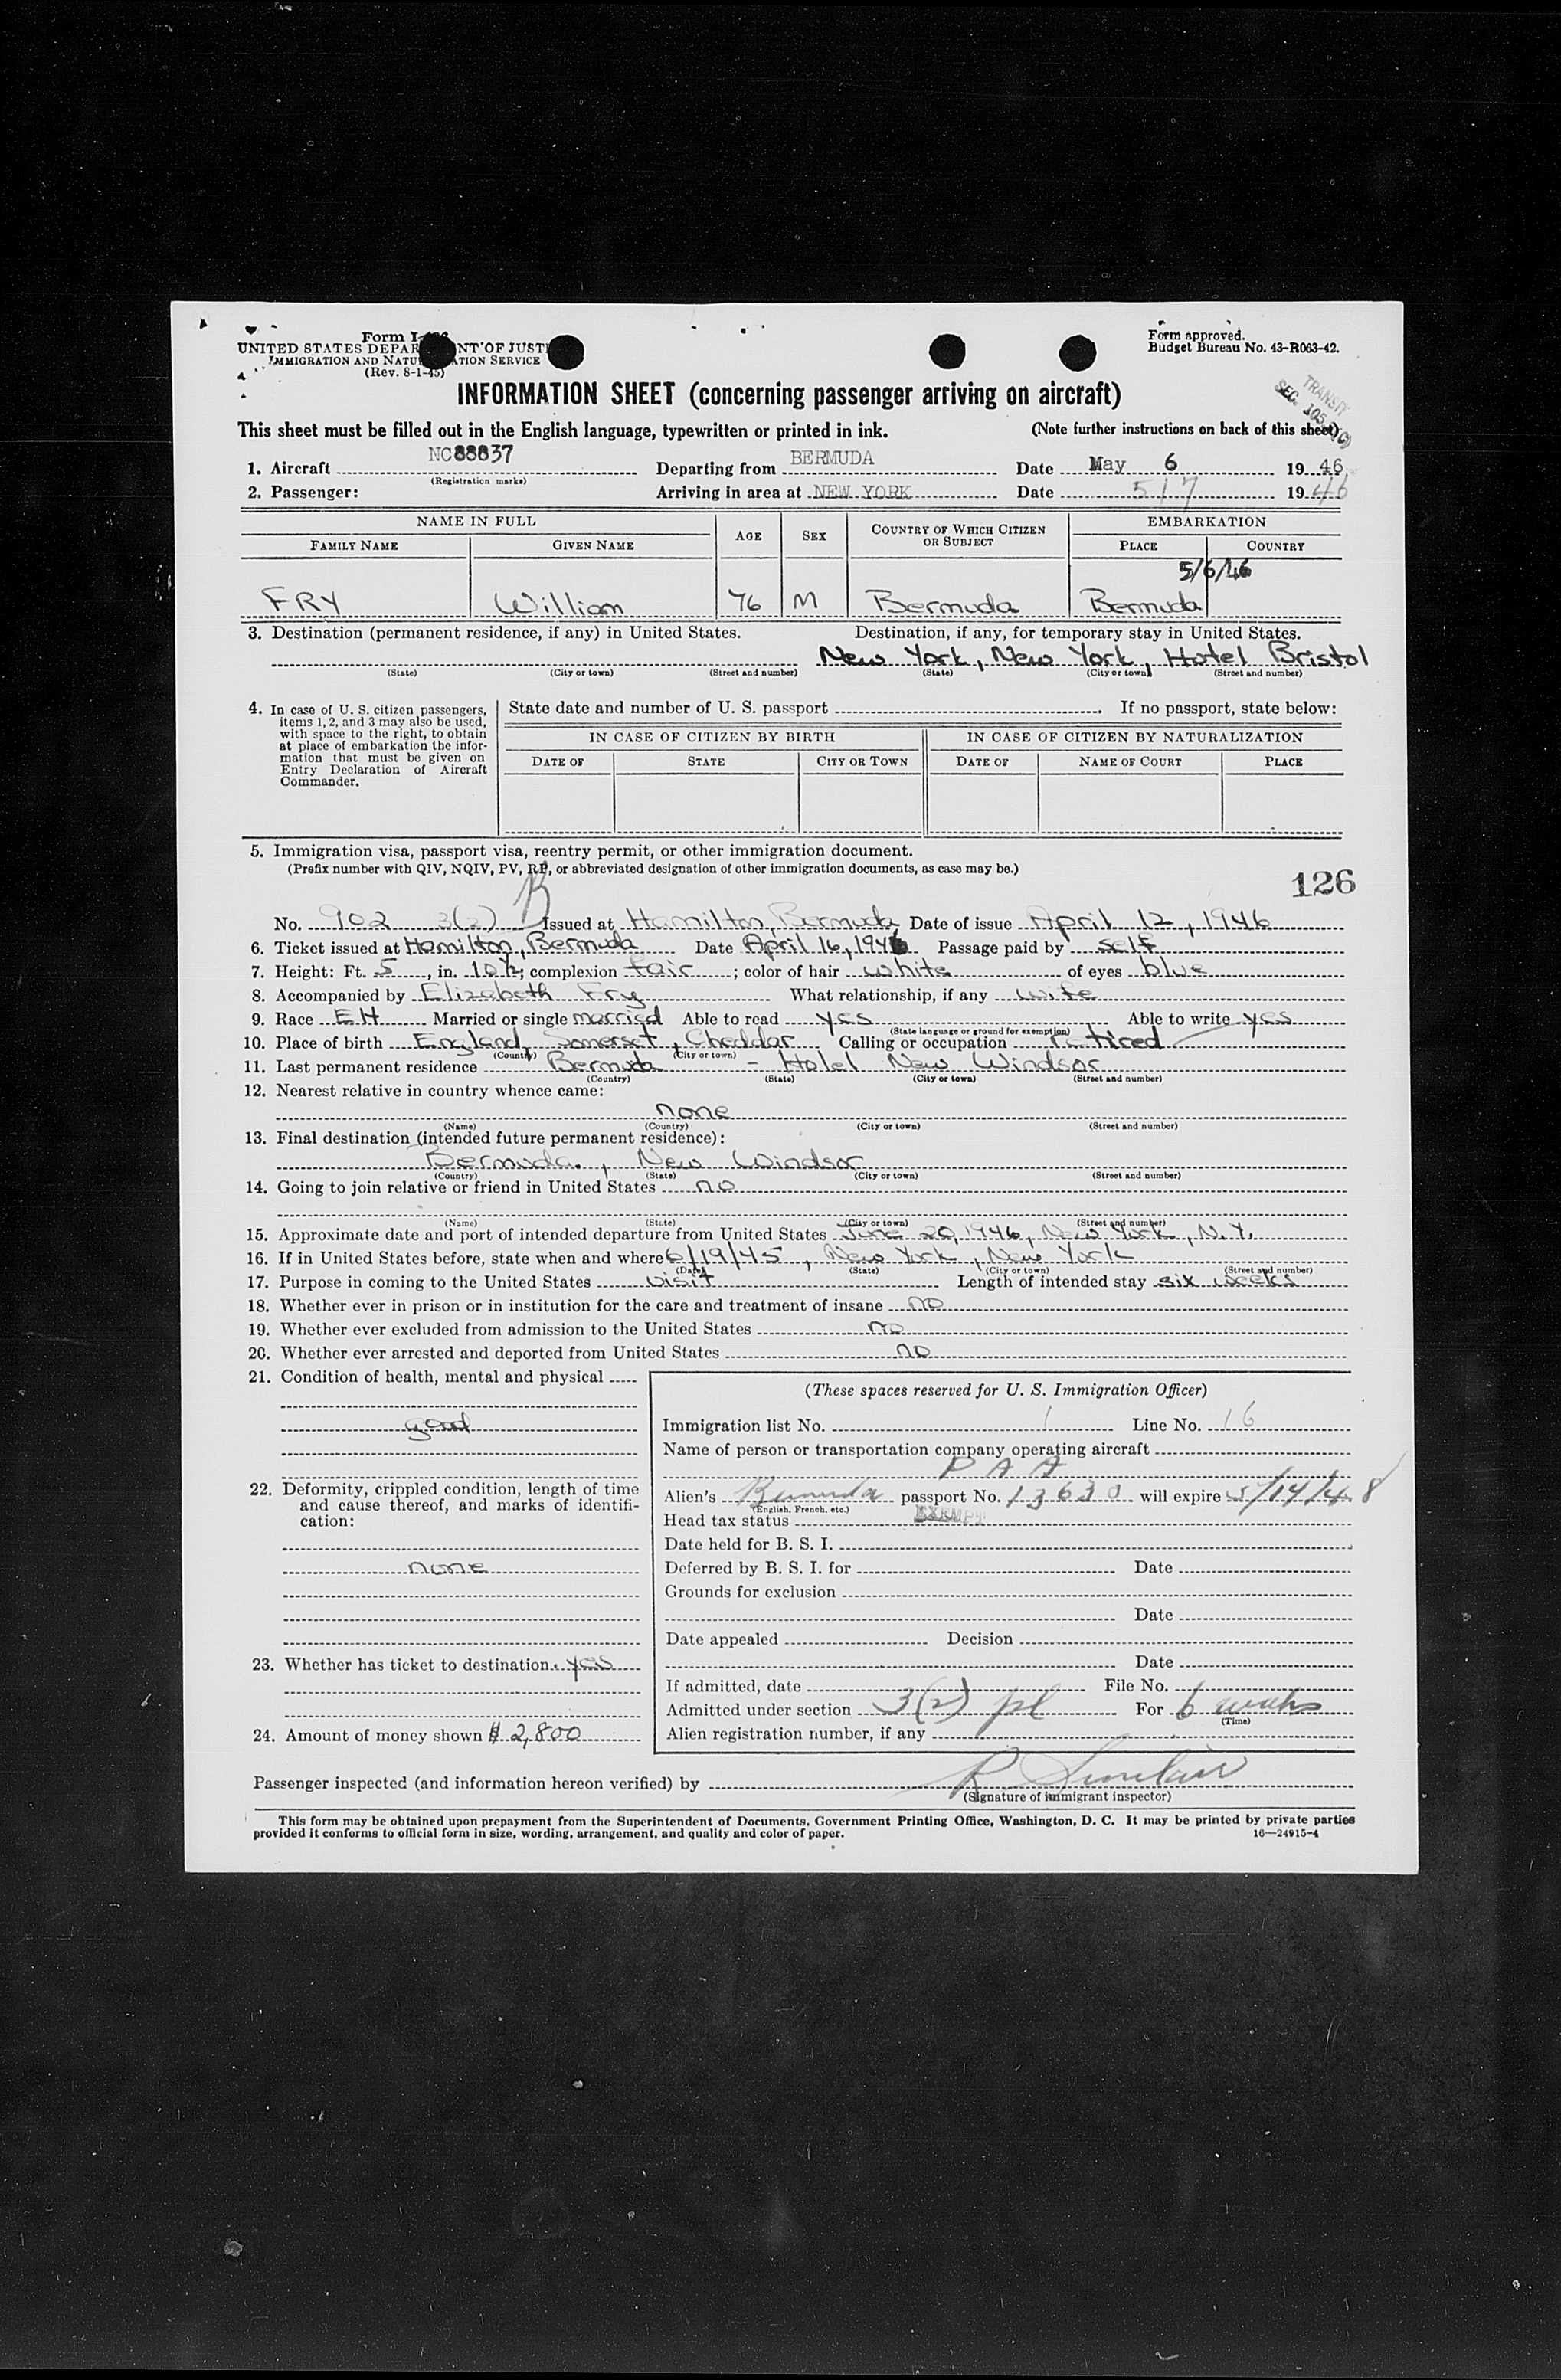 Form I-
UNITED STATES DEPAR NT OF JUST
IMMIGRATION AND NATU ATION SERVICE
(Rev. 8-1-45)
Form approved.
Budget Bureau No. 43-R063-42.
INFORMATION SHEET (concerning passenger arriving on aircraft)
TRANSIT
SEC. 105
This sheet must be filled out in the English language, typewritten or printed in ink. (Note further instructions on back of this sheet)
1. Aircraft NC88837 Departing from BERMUDA Date May 6 1946
(Registration marks)
2. Passenger: Arriving in area at NEW YORK Date 5/7 1946
NAME IN FULL AGE SEX COUNTRY OF WHICH CITIZEN OR SUBJECT EMBARKATION
FAMILY NAME GIVEN NAME PLACE COUNTRY
5/6/46
FRY William 76 M Bermuda Bermuda
3. Destination (permanent residence, if any) in United States. Destination, if any, for temporary stay in United States.
New York, New York, Hotel Bristol
(State) (City or town) (Street and number) (State) (City or town) (Street and number)
4. In case of U. S. citizen passengers, items 1, 2, and 3 may also be used, with space to the right, to obtain at place of embarkation the information that must be given on Entry Declaration of Aircraft Commander.
State date and number of U. S. passport If no passport, state below:
IN CASE OF CITIZEN BY BIRTH IN CASE OF CITIZEN BY NATURALIZATION
DATE OF STATE CITY OR TOWN DATE OF NAME OF COURT PLACE
5. Immigration visa, passport visa, reentry permit, or other immigration document.
(Prefix number with QIV, NQIV, PV, RP, or abbreviated designation of other immigration documents, as case may be.)
126
No. 902 3(2) Issued at Hamilton, Bermuda Date of issue April 12, 1946
6. Ticket issued at Hamilton, Bermuda Date April 16, 1946 Passage paid by self
7. Height: Ft. 5, in. 10½; complexion fair; color of hair white of eyes blue
8. Accompanied by Elizabeth Fry What relationship, if any wife
9. Race EH Married or single married Able to read yes Able to write yes
(State language or ground for exemption)
10. Place of birth England, Somerset, Cheddar Calling or occupation retired
(Country) (City or town)
11. Last permanent residence Bermuda - Hotel New Windsor
(Country) (State) (City or town) (Street and number)
12. Nearest relative in country whence came:
none
(Name) (Country) (City or town) (Street and number)
13. Final destination (intended future permanent residence):
Bermuda, New Windsor
(Country) (State) (City or town) (Street and number)
14. Going to join relative or friend in United States no
(Name) (State) (City or town) (Street and number)
15. Approximate date and port of intended departure from United States June 20, 1946, New York, N.Y.
16. If in United States before, state when and where 6/19/45, New York, New York
(Date) (State) (City or town) (Street and number)
17. Purpose in coming to the United States visit Length of intended stay six weeks
18. Whether ever in prison or in institution for the care and treatment of insane no
19. Whether ever excluded from admission to the United States no
20. Whether ever arrested and deported from United States no
21. Condition of health, mental and physical
good
22. Deformity, crippled condition, length of time and cause thereof, and marks of identification:
none
23. Whether has ticket to destination. yes
24. Amount of money shown $ 2,800
(These spaces reserved for U. S. Immigration Officer)
Immigration list No. 1 Line No. 16
Name of person or transportation company operating aircraft
P A A
Alien's Bermuda passport No. 13630 will expire 5/14/48
(English, French, etc.)
Head tax status EXEMPT
Date held for B. S. I.
Deferred by B. S. I. for Date
Grounds for exclusion
Date
Date appealed Decision
Date
If admitted, date File No.
Admitted under section 3(2) pl For 6 weeks
(Time)
Alien registration number, if any
Passenger inspected (and information hereon verified) by R Sinclair
(Signature of immigrant inspector)
This form may be obtained upon prepayment from the Superintendent of Documents, Government Printing Office, Washington, D. C. It may be printed by private parties
provided it conforms to official form in size, wording, arrangement, and quality and color of paper. 16—24915-4